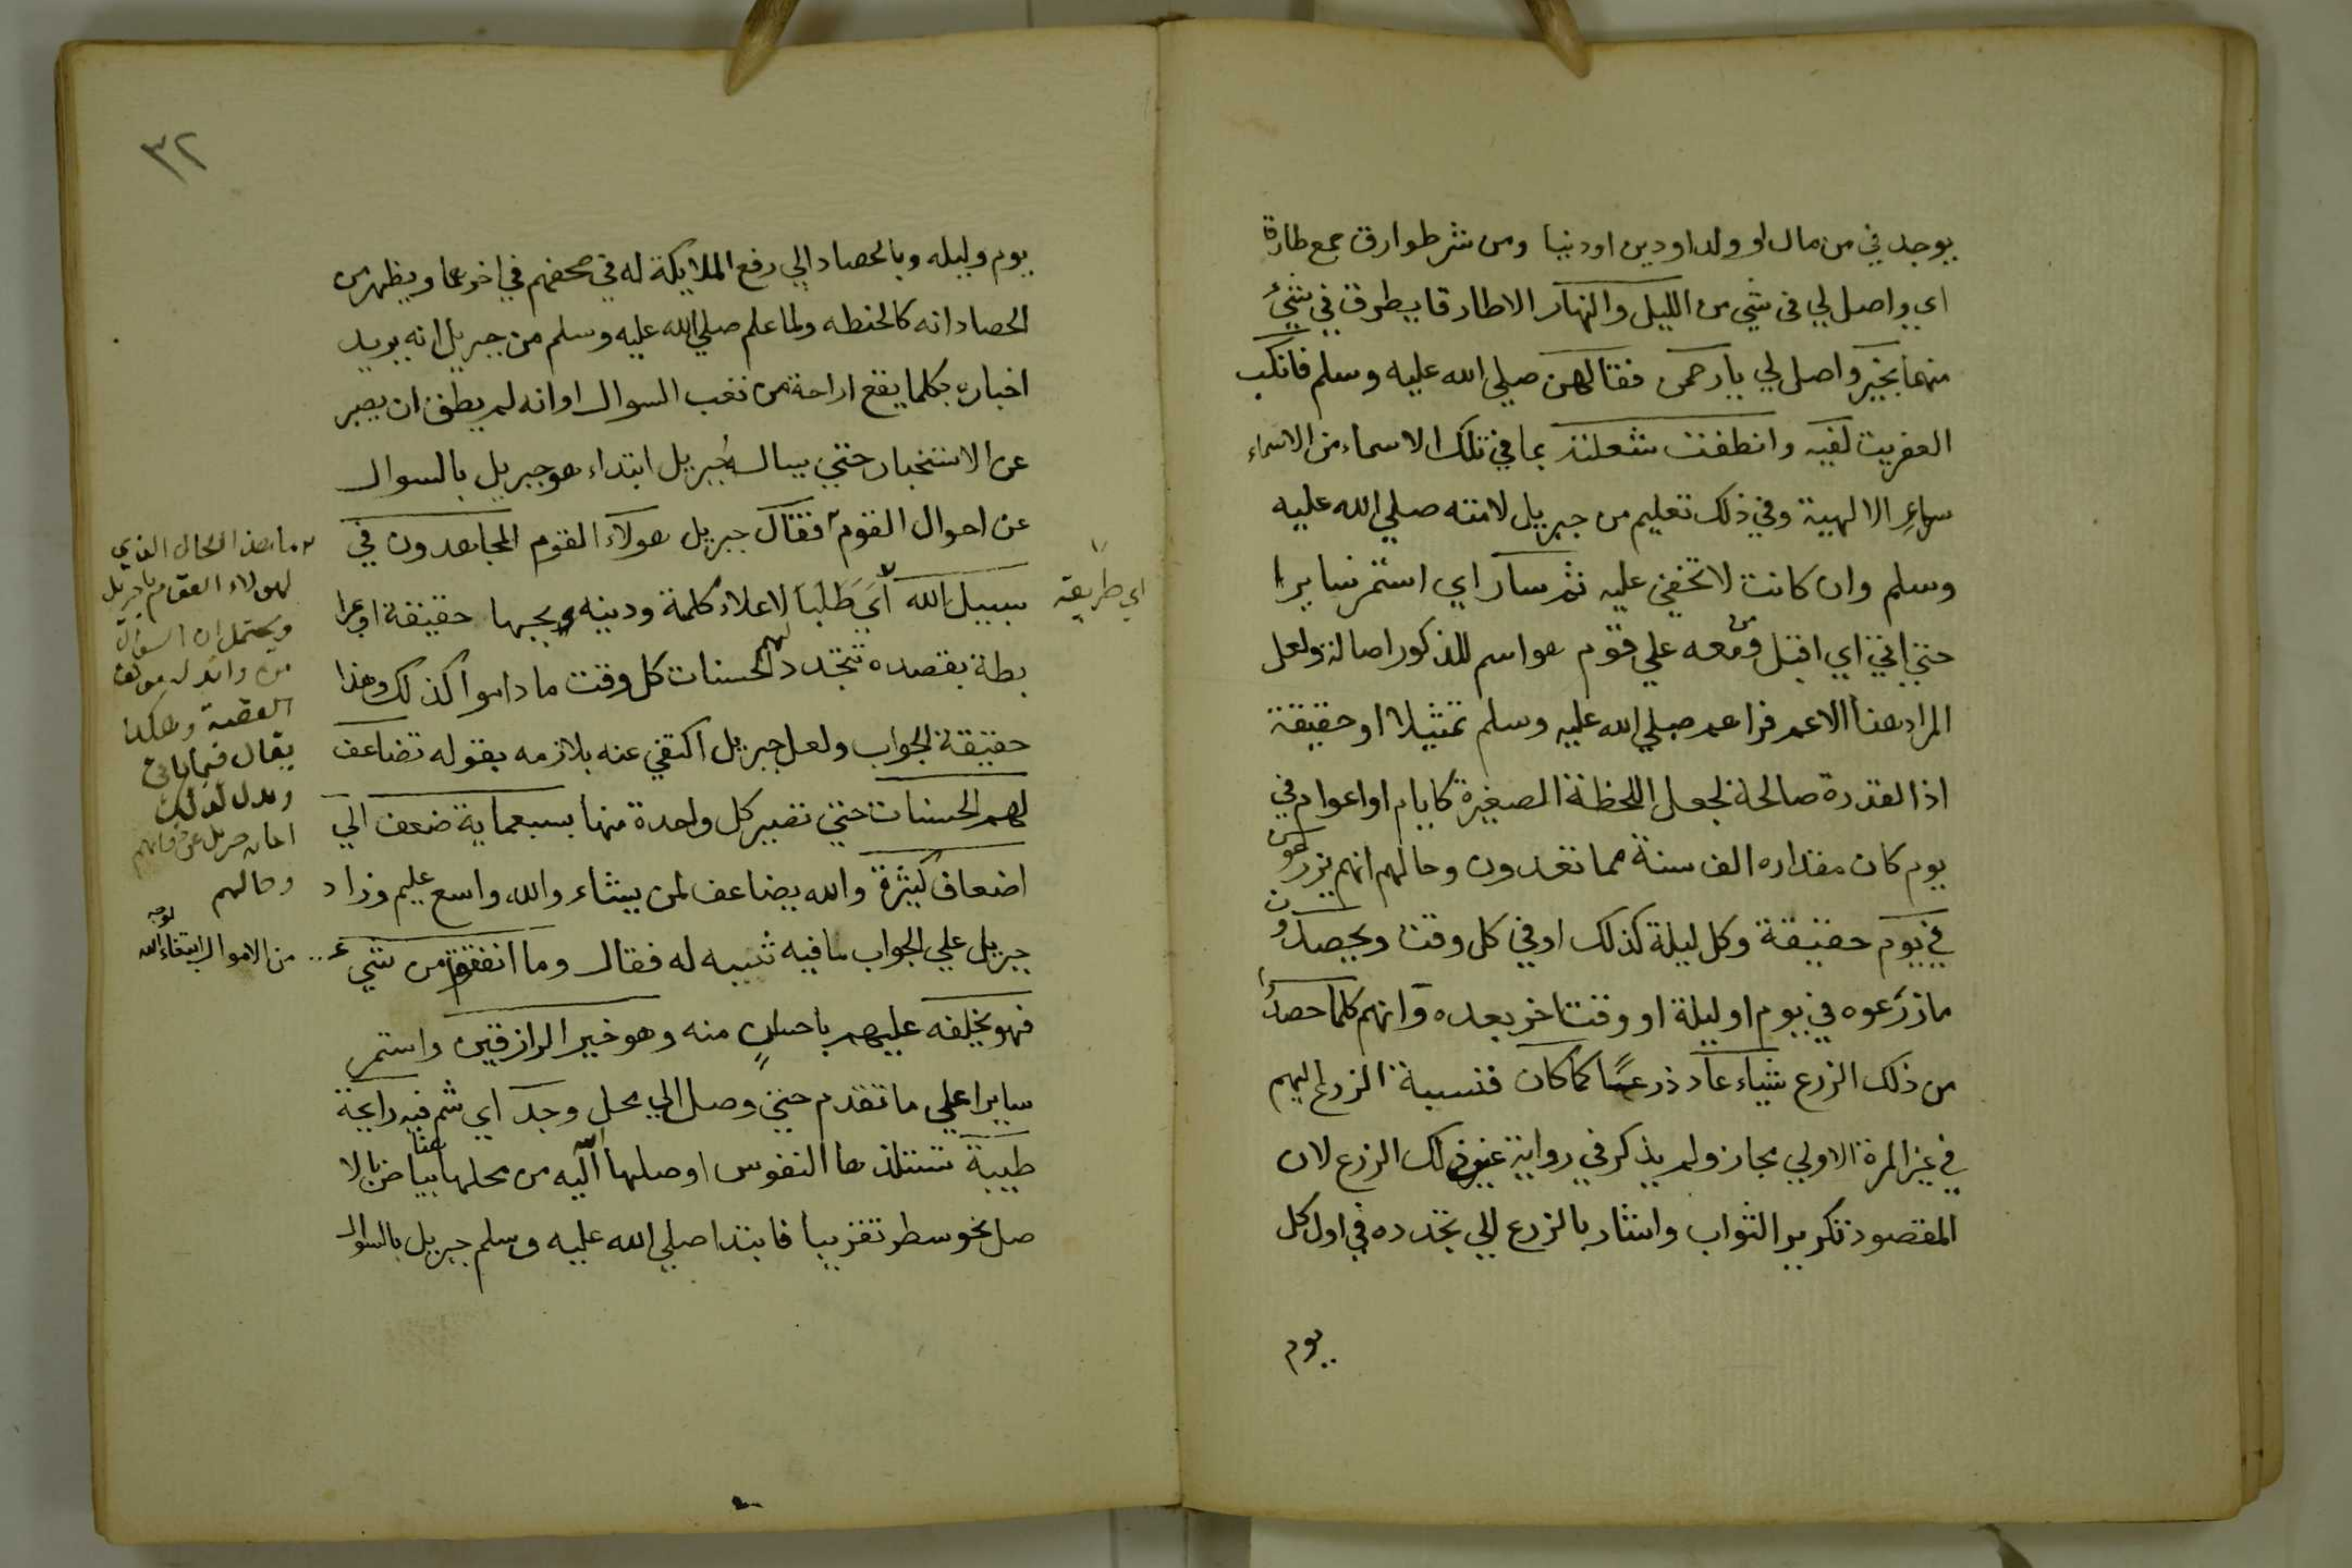 يوجد في من مال او ولد او دين او دنيا ومن شر طوارق جمع طارقا
اي واصل لي في شي من الليل والنهار الا طارقا يطرق في شيء
منهما بخير واصل لي يا رحمن فقالهن صلي الله عليه وسلم فانكب
العفريت لفيه وانطفت شعلته بما في تلك الاسماء من الاسراء
الالهية وفي ذلك تعليم من جبريل لامته صلي الله عليه
وسلم وان كانت لا تخفي عليه ثم سار اي استمر سايرا
حتي اتي اي اقبل ومن معه علي قوم هو اسم للذكور اصالة ولعل
المراد هنا الاعم فراهم صلي الله عليه وسلم تمثيلا او حقيقة
اذ القدرة صالحة لجعل اللحظة الصغيرة كايام او اعوام في
يوم كان مقداره الف سنة مما تعدون وحالهم انهم يزرعون
في يوم حقيقة وكل ليلة كذلك او في كل وقت ويحصدون
ما زرعوه في يوم او ليلة او وقت اخر بعده وانهم كلما حصدوا
من ذلك الزرع شياء عاد زرعه كما كان فنسبة الزرع اليهم
في غير المرة الاولي مجاز ولم يذكر في رواية عين ذلك الزرع لان
المقصود تكرير الثواب واشار بالزرع الي تجدده في اول كل
يوم
٣٢
يوم وليله وبالحصاد الي رفع الملايكة له في صحفهم في اخرهما ويظهر من
الحصاد انه كالحنطه ولما علم صلي الله عليه وسلم من جبريل انه يريد
اخباره بكلما يقع اراحة من تعب السوال او انه لم يطق ان يصبر
عن الاستخبار حتي يساله جبريل ابتداء هو جبريل بالسوال
عن احوال القوم فقال جبريل هولاء القوم المجاهدون في
سبيل الله اي طلبا لاعلاء كلمة ودينه حقيقة او
بطة بقصده تتجدد لهم الحسنات كل وقت ما داموا كذلك وهذا
حقيقة الجواب ولعل جبريل اكتفي عنه بلازمه بقوله تضاعف
لهم الحسنات حتي تصير كل واحدة منها بسبعماية ضعف الي
اضعاف كثيرة والله يضاعف لمن يشاء والله واسع عليم وزاد
جبريل علي الجواب ما فيه تنبيه له فقال وما انفقتم من شي
فهو يخلفه عليهم باحسان منه وهو خير الرازقين واستمر
سايرا علي ما تقدم حتي وصل الي محل وجد اي شم فيه رايحة
طيبة تستلذها النفوس اوصلها اليه من محلها هنا بياض بالا
صل نحو سطر تقريبا فابتدا صلي الله عليه وسلم جبريل بالسوال
اي طريقه
ما هذا الحال الذي
لهولاء القوم يا جبريل
ويحتمل ان السوال
القصة وهكذا
يقال فيما ياتي
ويدل لذلك
وحالهم
من الاموال ابتغاء لوجه الله